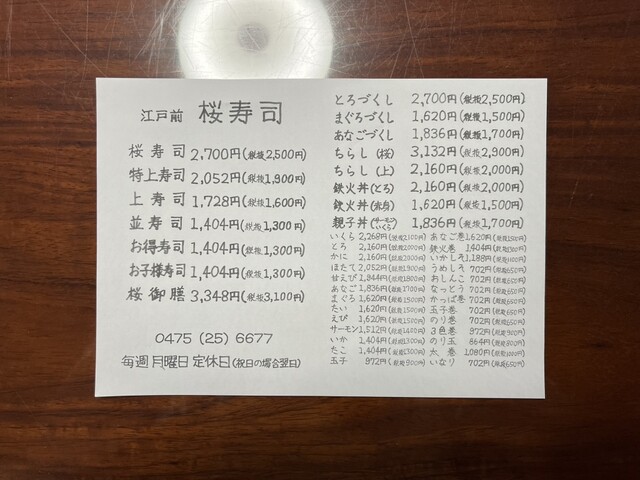 江戸前 桜寿司
桜寿司 2,700円(税抜2,500円)
特上寿司 2,052円(税抜1,900円)
上寿司 1,728円(税抜1,600円)
並寿司 1,404円(税抜1,300円)
お得寿司 1,404円(税抜1,300円)
お子様寿司 1,404円(税抜1,300円)
桜御膳 3,348円(税抜3,100円)
0475 (25) 6677
毎週月曜日定休日(祝日の場合翌日)
とろづくし 2,700円(税抜2,500円)
まぐろづくし 1,620円(税抜1,500円)
あなごづくし 1,836円(税抜1,700円)
ちらし(桜) 3,132円(税抜2,900円)
ちらし(上) 2,160円(税抜2,000円)
鉄火丼(とろ) 2,160円(税抜2,000円)
鉄火丼(赤身) 1,620円(税抜1,500円)
親子丼(サーモンいくら) 1,836円(税抜1,700円)
いくら 2,268円(税抜2100円)
とろ 2,160円(税抜2000円)
かに 2,160円(税抜2000円)
ほたて 2,052円(税抜1900円)
甘えび 1,944円(税抜1800円)
あなご 1,836円(税抜1700円)
まぐろ 1,620円(税抜1500円)
たい 1,620円(税抜1500円)
えび 1,620円(税抜1500円)
サーモン 1,512円(税抜1400円)
いか 1,404円(税抜1300円)
たこ 1,404円(税抜1300円)
玉子 972円(税抜900円)
あなご巻 1,620円(税抜1500円)
鉄火巻 1,404円(税抜1300円)
いかしそ 1,188円(税抜1100円)
うめしそ 702円(税抜650円)
おしんこ 702円(税抜650円)
なっとう 702円(税抜650円)
かっぱ巻 702円(税抜650円)
玉子巻 702円(税抜650円)
のり巻 702円(税抜650円)
3色巻 972円(税抜900円)
のり玉 864円(税抜800円)
太巻 1,080円(税抜1000円)
いなり 702円(税抜650円)